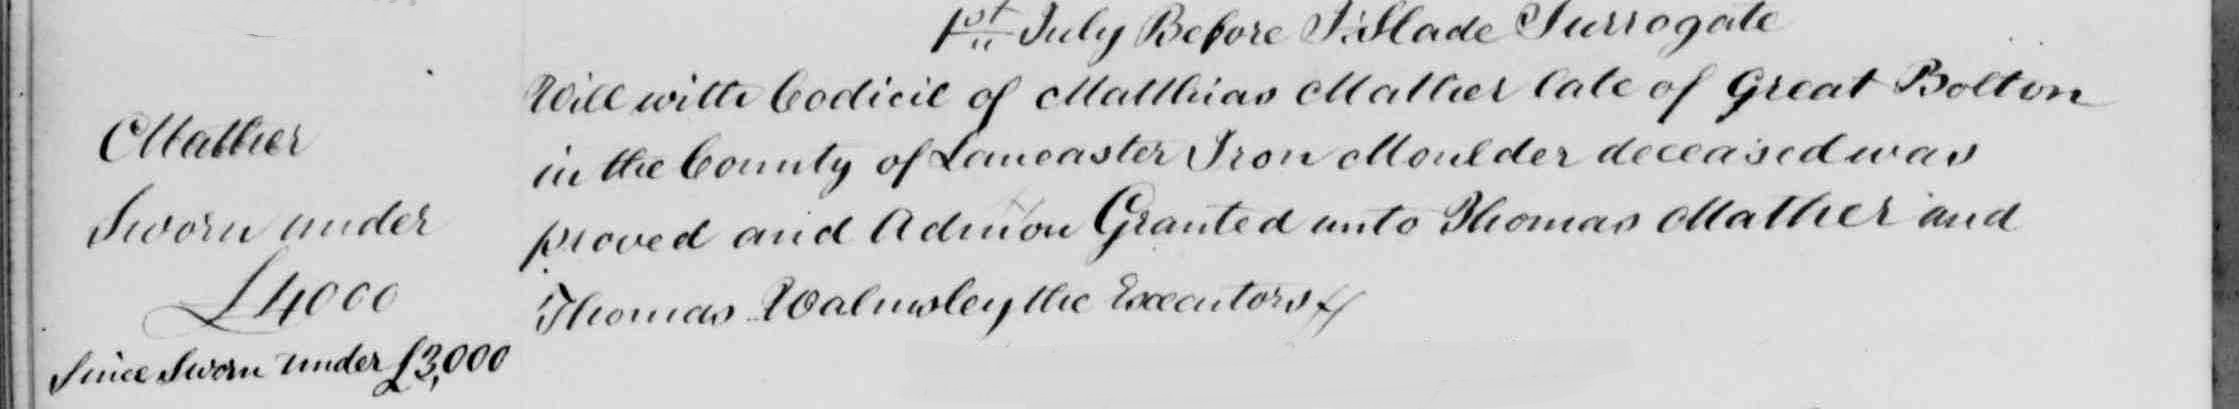 1st July Before J. Slade Surrogate
Will with Codicil of Matthias Mather late of Great Bolton
in the County of Lancaster Iron Moulder deceased was
proved and Admon Granted unto Thomas Mather and
Thomas Walmsley the Executors
Mather
Sworn under
£4000
Since Sworn under £3,000